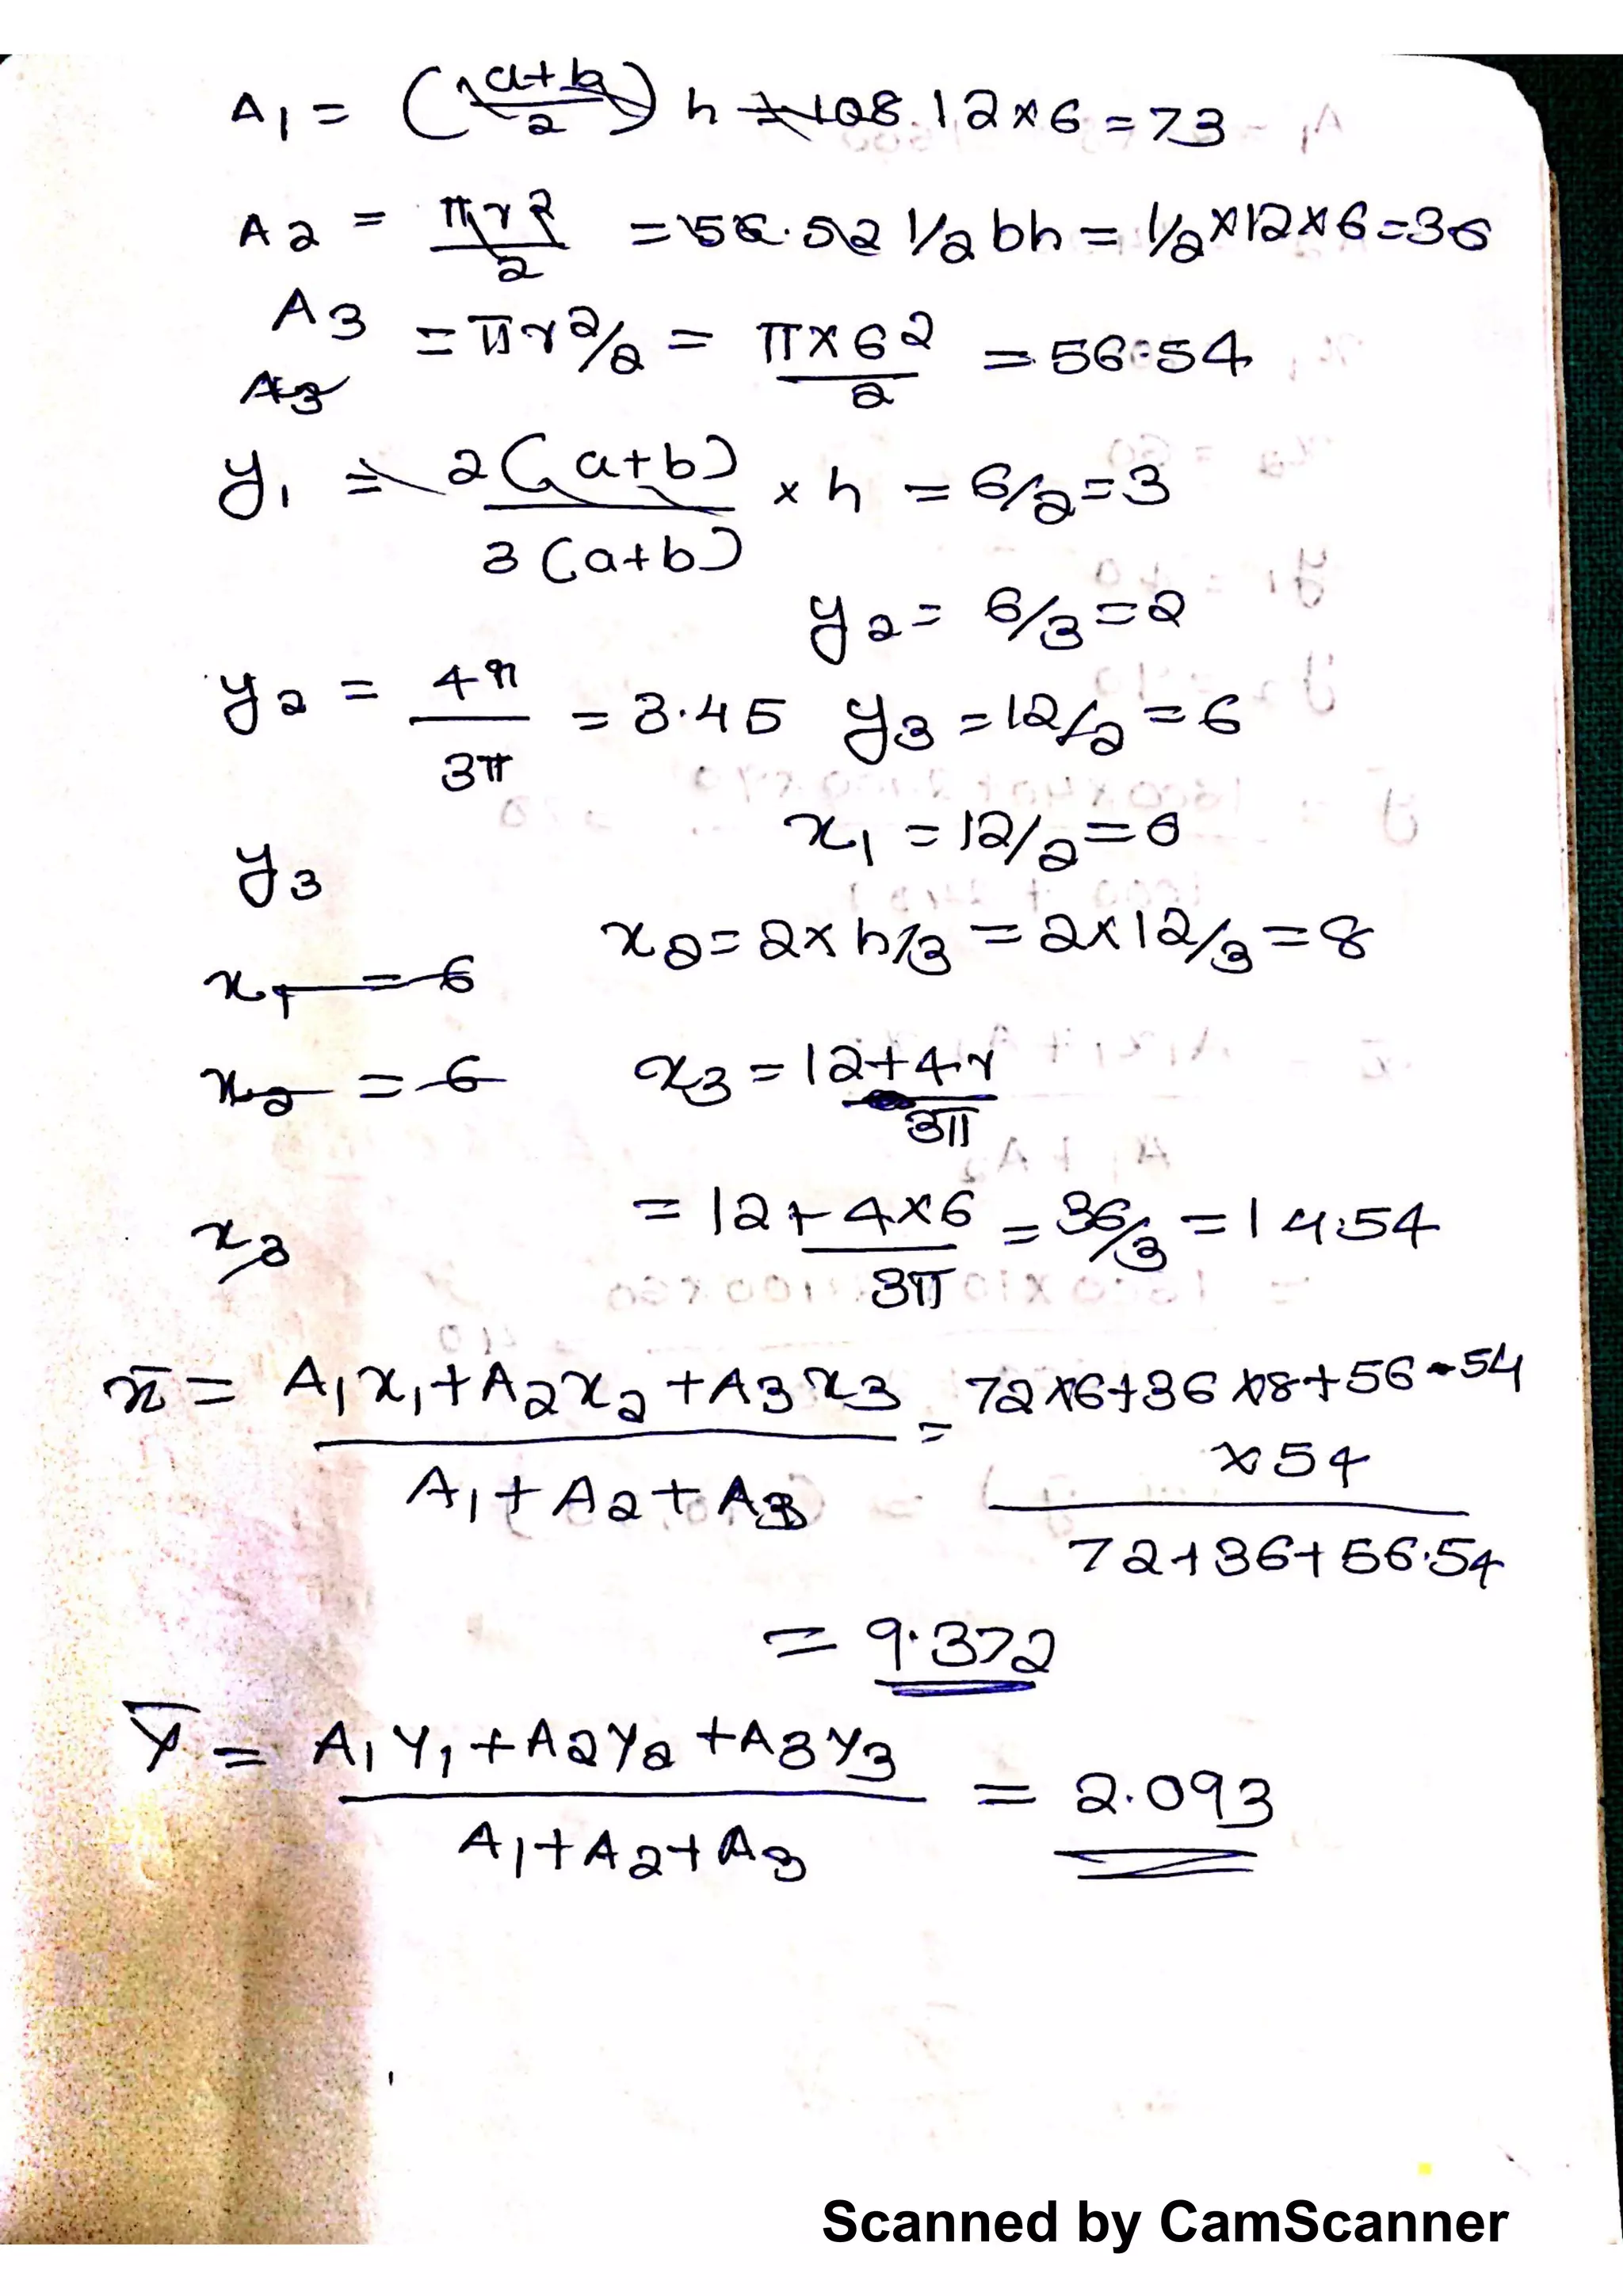 A1 = (a+b/2) h = 108 12×6 = 73
A2 = πr2/2 = 56.52 1/2 bh = 1/2×12×6=36
A3 = πr2/2 = π×62/2 = 56.54
A3
y1 = 2(a+b)/3(a+b) × h = 6/2=3
y2= 6/3=2
y2 = 4r/3π = 3.45 y3 =12/2=6
x1 =12/2=6
y3
x2= 2× h/3 = 2×12/3=8
x1 = 6
x2 = 6 x3 = 12+4r/3π
x3 = 12+4×6/3π = 36/3 = 14.54
x̄ = A1x1+A2x2+A3x3/A1+A2+A3 = 72×6+36×8+56.54×54/72+36+56.54
= 9.372
Y̅ = A1Y1+A2Y2+A3Y3/A1+A2+A3 = 2.093
Scanned by CamScanner